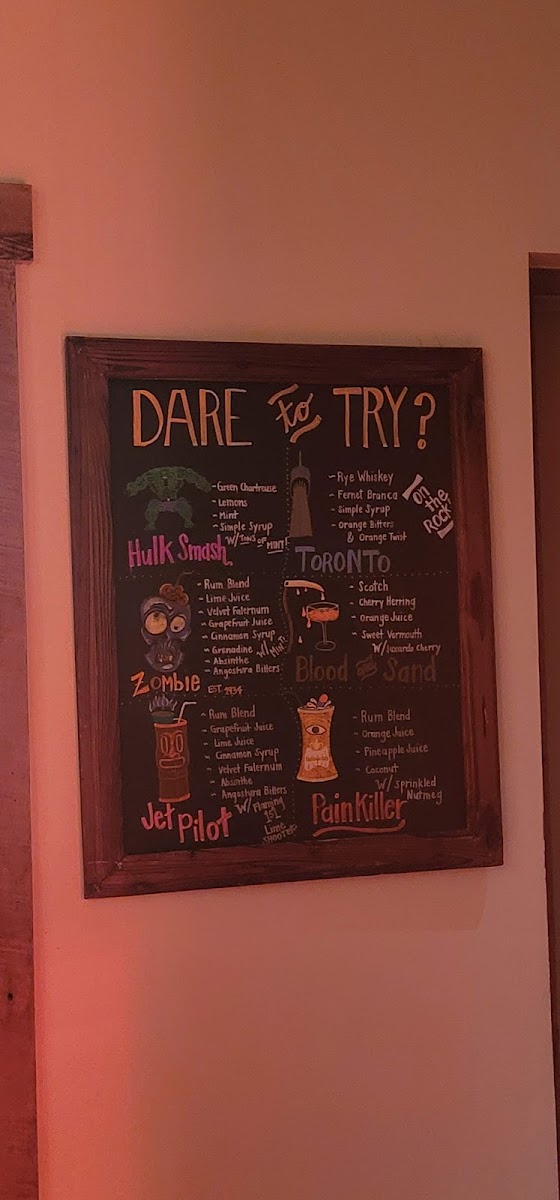 DARE to TRY?
- Green Chartreuse
- Lemons
- Mint
- Simple Syrup
W/ Tons of MINT!
Hulk Smash
- Rye Whiskey
- Fernet Branca
- Simple Syrup
- Orange Bitters
& Orange Twist
on
the
Rock!
TORONTO
- Rum Blend
- Lime Juice
- Velvet Falernum
- Grapefruit Juice
- Cinnamon Syrup
- Grenadine W/ MINT!
- Absinthe
- Angostura Bitters
Zombie EST. 1934
- Scotch
- Cherry Herring
- Orange Juice
- Sweet Vermouth
W/ Luxardo Cherry
Blood and Sand
- Rum Blend
- Grapefruit Juice
- Lime Juice
- Cinnamon Syrup
- Velvet Falernum
- Absinthe
- Angostura Bitters
W/ Flaming
151
Lime
SHOOTER
Jet Pilot
- Rum Blend
- Orange Juice
- Pineapple Juice
- Coconut
W/ Sprinkled
Nutmeg
PainKiller